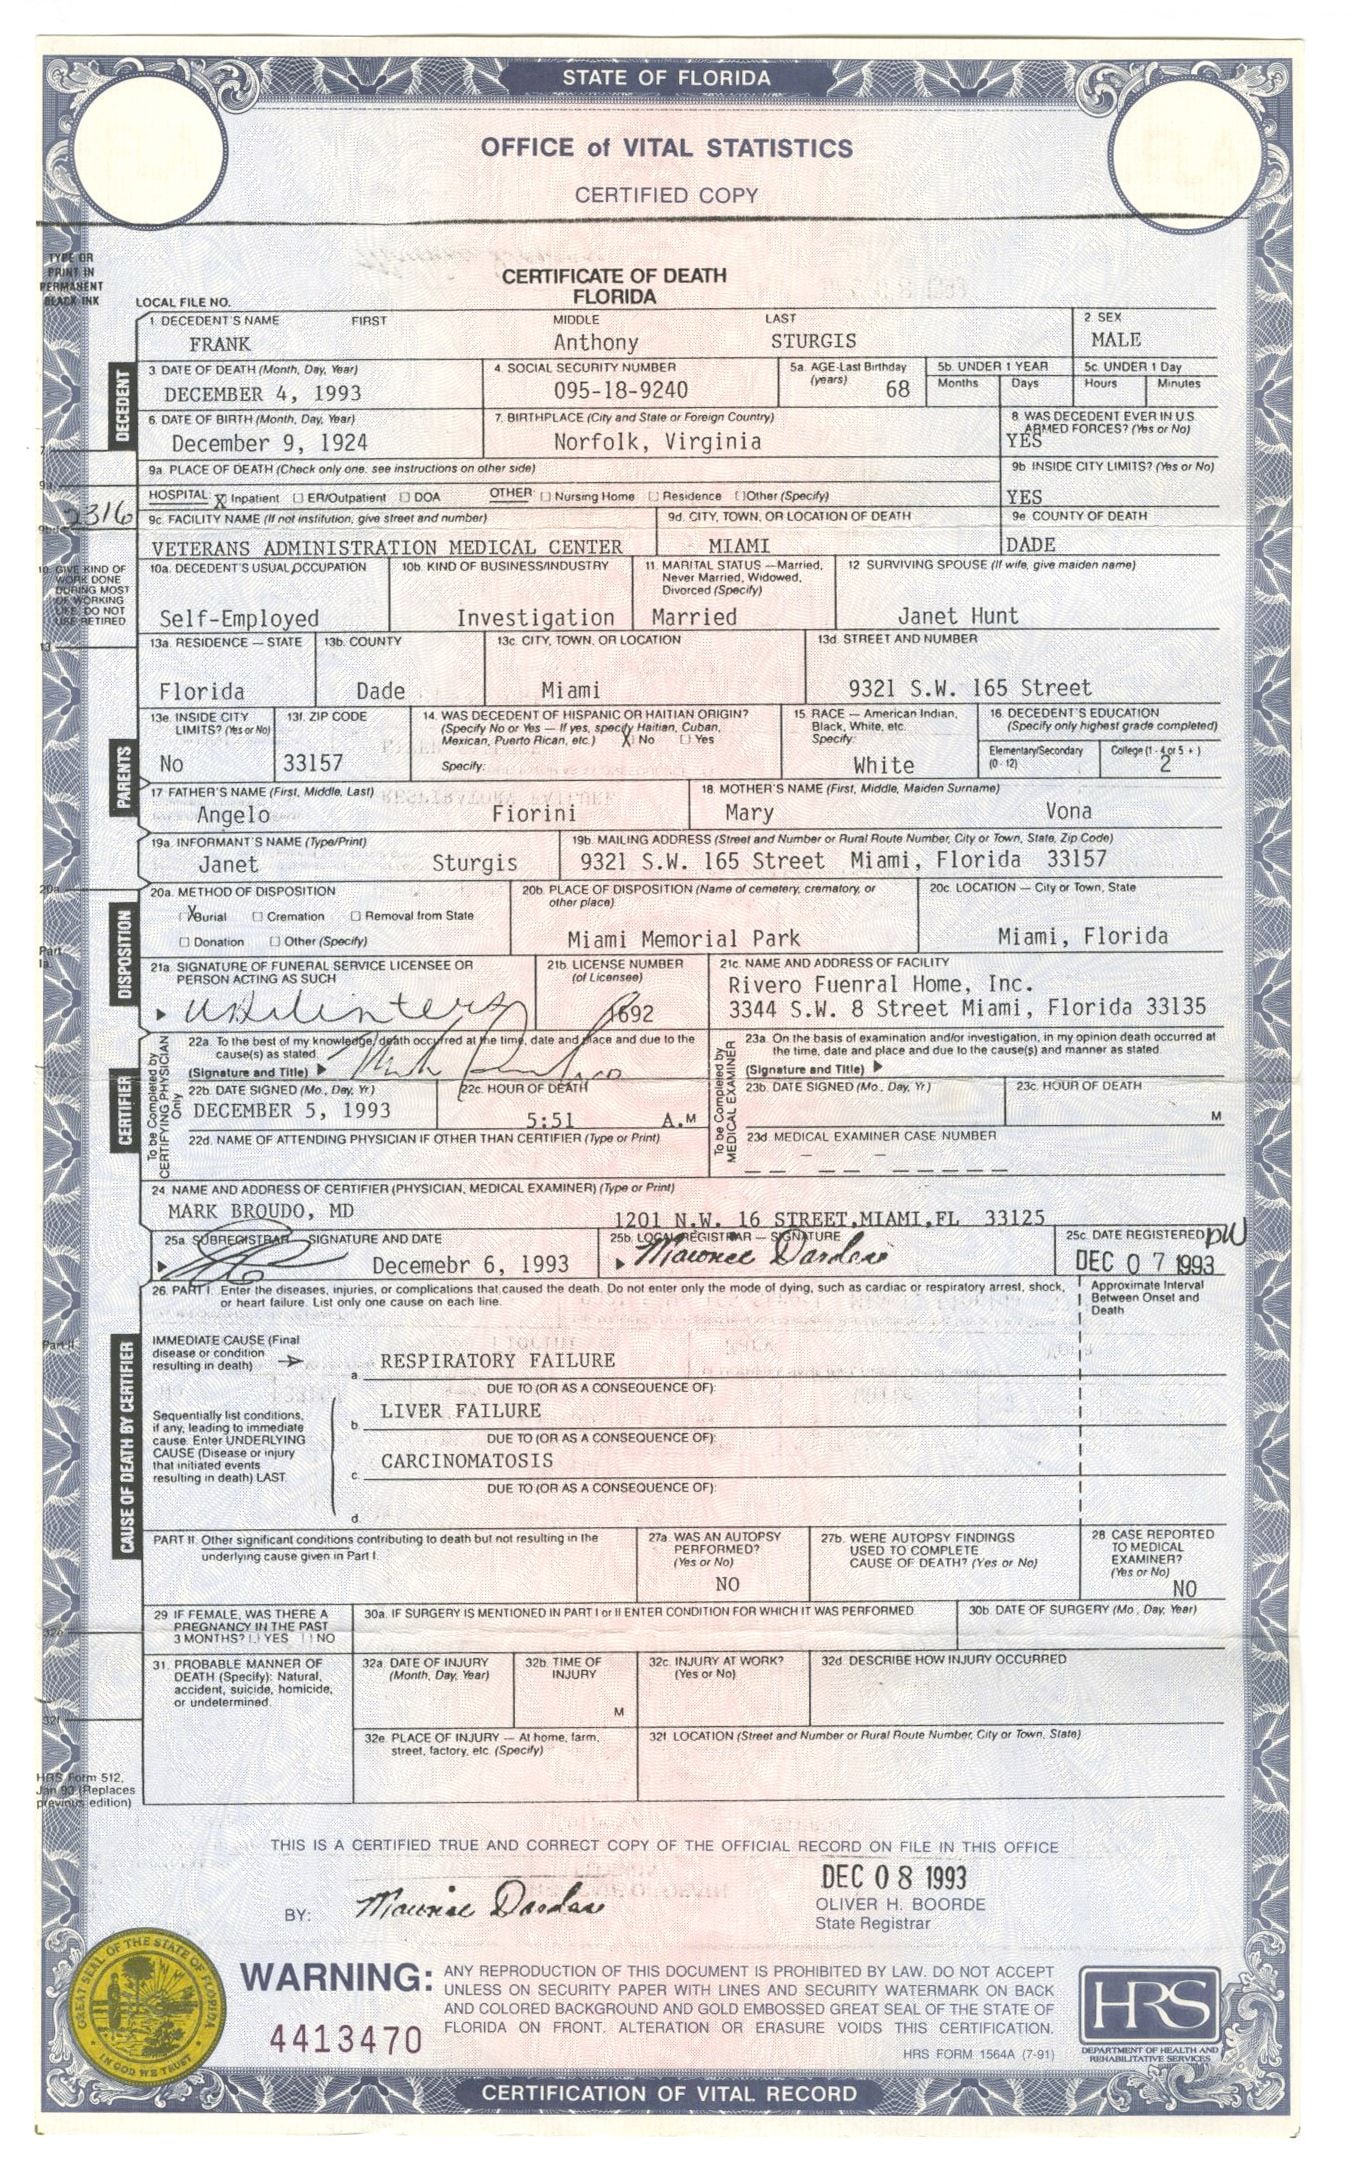 STATE OF FLORIDA
OFFICE of VITAL STATISTICS
CERTIFIED COPY
TYPE OR
PRINT IN
PERMANENT
BLACK INK
CERTIFICATE OF DEATH
FLORIDA
LOCAL FILE NO.
1. DECEDENT'S NAME FIRST MIDDLE LAST 2. SEX
FRANK Anthony STURGIS MALE
DECEDENT
3. DATE OF DEATH (Month, Day, Year) 4. SOCIAL SECURITY NUMBER 5a. AGE-Last Birthday (years) 5b. UNDER 1 YEAR 5c. UNDER 1 Day
Months Days Hours Minutes
DECEMBER 4, 1993 095-18-9240 68
6. DATE OF BIRTH (Month, Day, Year) 7. BIRTHPLACE (City and State or Foreign Country) 8. WAS DECEDENT EVER IN U.S. ARMED FORCES? (Yes or No)
December 9, 1924 Norfolk, Virginia YES
9a. PLACE OF DEATH (Check only one: see instructions on other side) 9b. INSIDE CITY LIMITS? (Yes or No)
HOSPITAL: X Inpatient ☐ ER/Outpatient ☐ DOA OTHER: ☐ Nursing Home ☐ Residence ☐ Other (Specify) YES
2316
9c. FACILITY NAME (If not institution, give street and number) 9d. CITY, TOWN, OR LOCATION OF DEATH 9e. COUNTY OF DEATH
VETERANS ADMINISTRATION MEDICAL CENTER MIAMI DADE
10. GIVE KIND OF
WORK DONE
DURING MOST
OF WORKING
LIFE. DO NOT
USE RETIRED
10a. DECEDENT'S USUAL OCCUPATION 10b. KIND OF BUSINESS/INDUSTRY 11. MARITAL STATUS — Married, Never Married, Widowed, Divorced (Specify) 12. SURVIVING SPOUSE (If wife, give maiden name)
Self-Employed Investigation Married Janet Hunt
13a. RESIDENCE — STATE 13b. COUNTY 13c. CITY, TOWN, OR LOCATION 13d. STREET AND NUMBER
Florida Dade Miami 9321 S.W. 165 Street
13e. INSIDE CITY LIMITS? (Yes or No) 13f. ZIP CODE 14. WAS DECEDENT OF HISPANIC OR HAITIAN ORIGIN? (Specify No or Yes — If yes, specify Haitian, Cuban, Mexican, Puerto Rican, etc.) X No ☐ Yes Specify: 15. RACE — American Indian, Black, White, etc. Specify: 16. DECEDENT'S EDUCATION (Specify only highest grade completed)
Elementary/Secondary (0-12) College (1-4 or 5+)
No 33157 White 2
PARENTS
17. FATHER'S NAME (First, Middle, Last) 18. MOTHER'S NAME (First, Middle, Maiden Surname)
Angelo Fiorini Mary Vona
19a. INFORMANT'S NAME (Type/Print) 19b. MAILING ADDRESS (Street and Number or Rural Route Number, City or Town, State, Zip Code)
Janet Sturgis 9321 S.W. 165 Street Miami, Florida 33157
DISPOSITION
20a. METHOD OF DISPOSITION 20b. PLACE OF DISPOSITION (Name of cemetery, crematory, or other place) 20c. LOCATION — City or Town, State
X Burial ☐ Cremation ☐ Removal from State
☐ Donation ☐ Other (Specify) Miami Memorial Park Miami, Florida
21a. SIGNATURE OF FUNERAL SERVICE LICENSEE OR PERSON ACTING AS SUCH 21b. LICENSE NUMBER (of Licensee) 21c. NAME AND ADDRESS OF FACILITY
1692 Rivero Fuenral Home, Inc.
3344 S.W. 8 Street Miami, Florida 33135
CERTIFIER
To be Completed by CERTIFYING PHYSICIAN Only
22a. To the best of my knowledge, death occurred at the time, date and place and due to the cause(s) as stated.
(Signature and Title)
22b. DATE SIGNED (Mo., Day, Yr.) 22c. HOUR OF DEATH
DECEMBER 5, 1993 5:51 A.M
22d. NAME OF ATTENDING PHYSICIAN IF OTHER THAN CERTIFIER (Type or Print)
To be Completed by MEDICAL EXAMINER
23a. On the basis of examination and/or investigation, in my opinion death occurred at the time, date and place and due to the cause(s) and manner as stated.
(Signature and Title)
23b. DATE SIGNED (Mo., Day, Yr.) 23c. HOUR OF DEATH
M
23d. MEDICAL EXAMINER CASE NUMBER
24. NAME AND ADDRESS OF CERTIFIER (PHYSICIAN, MEDICAL EXAMINER) (Type or Print)
MARK BROUDO, MD 1201 N.W. 16 STREET, MIAMI, FL 33125
25a. SUBREGISTRAR — SIGNATURE AND DATE 25b. LOCAL REGISTRAR — SIGNATURE 25c. DATE REGISTERED DW
Decemebr 6, 1993 DEC 07 1993
CAUSE OF DEATH BY CERTIFIER
26. PART I. Enter the diseases, injuries, or complications that caused the death. Do not enter only the mode of dying, such as cardiac or respiratory arrest, shock, or heart failure. List only one cause on each line.
Approximate Interval Between Onset and Death
IMMEDIATE CAUSE (Final disease or condition resulting in death)
a. RESPIRATORY FAILURE
DUE TO (OR AS A CONSEQUENCE OF):
Sequentially list conditions, if any, leading to immediate cause. Enter UNDERLYING CAUSE (Disease or injury that initiated events resulting in death) LAST
b. LIVER FAILURE
DUE TO (OR AS A CONSEQUENCE OF):
c. CARCINOMATOSIS
DUE TO (OR AS A CONSEQUENCE OF):
d.
PART II. Other significant conditions contributing to death but not resulting in the underlying cause given in Part I.
27a. WAS AN AUTOPSY PERFORMED? (Yes or No)
NO
27b. WERE AUTOPSY FINDINGS USED TO COMPLETE CAUSE OF DEATH? (Yes or No)
28. CASE REPORTED TO MEDICAL EXAMINER? (Yes or No)
NO
29. IF FEMALE, WAS THERE A PREGNANCY IN THE PAST 3 MONTHS? ☐ YES ☐ NO
30a. IF SURGERY IS MENTIONED IN PART I or II ENTER CONDITION FOR WHICH IT WAS PERFORMED 30b. DATE OF SURGERY (Mo., Day, Year)
31. PROBABLE MANNER OF DEATH (Specify): Natural, accident, suicide, homicide, or undetermined.
32a. DATE OF INJURY (Month, Day, Year) 32b. TIME OF INJURY M 32c. INJURY AT WORK? (Yes or No) 32d. DESCRIBE HOW INJURY OCCURRED
32e. PLACE OF INJURY — At home, farm, street, factory, etc. (Specify) 32f. LOCATION (Street and Number or Rural Route Number, City or Town, State)
HRS Form 512,
Jan 93 (Replaces
previous edition)
THIS IS A CERTIFIED TRUE AND CORRECT COPY OF THE OFFICIAL RECORD ON FILE IN THIS OFFICE
DEC 08 1993
BY:
OLIVER H. BOORDE
State Registrar
GREAT SEAL OF THE STATE OF FLORIDA
IN GOD WE TRUST
WARNING:
ANY REPRODUCTION OF THIS DOCUMENT IS PROHIBITED BY LAW. DO NOT ACCEPT
UNLESS ON SECURITY PAPER WITH LINES AND SECURITY WATERMARK ON BACK
AND COLORED BACKGROUND AND GOLD EMBOSSED GREAT SEAL OF THE STATE OF
FLORIDA ON FRONT. ALTERATION OR ERASURE VOIDS THIS CERTIFICATION.
4413470
HRS FORM 1564A (7-91)
HRS
DEPARTMENT OF HEALTH AND
REHABILITATIVE SERVICES
CERTIFICATION OF VITAL RECORD